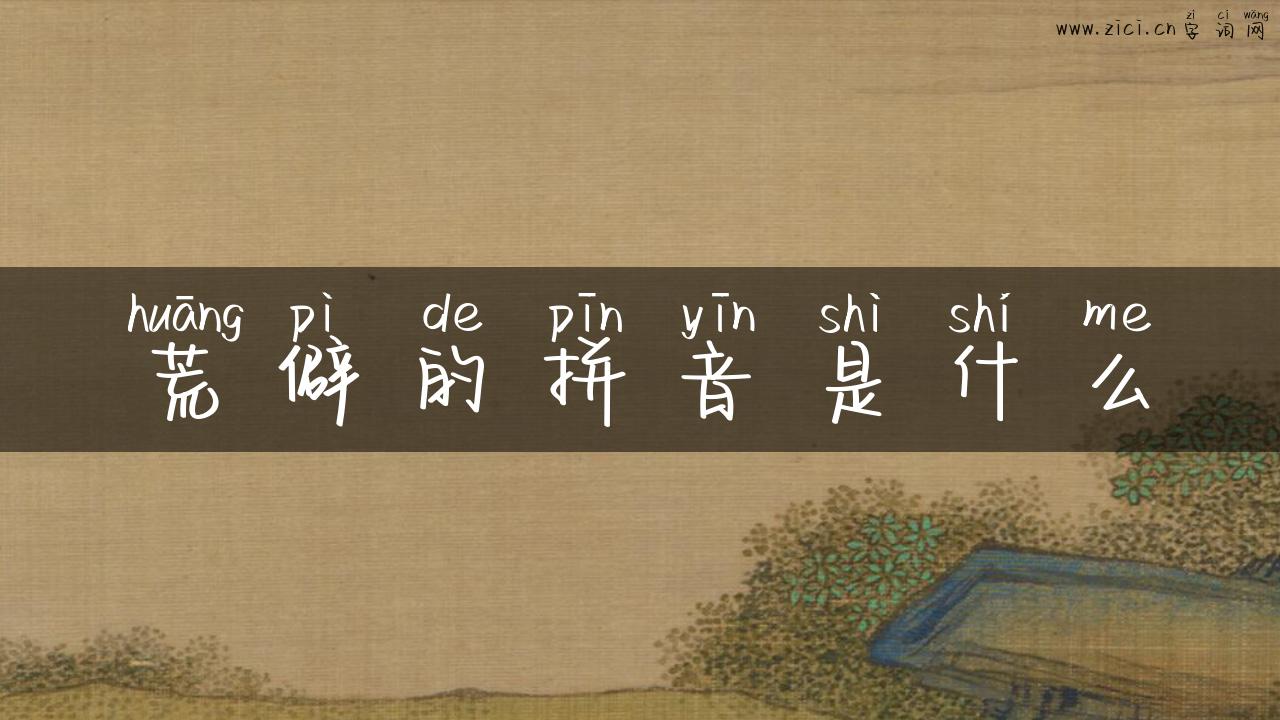 zì cí wǎng
www.zici.cn 字 词 网
huāng pì de pīn yīn shì shí me
荒 僻 的 拼 音 是 什 么